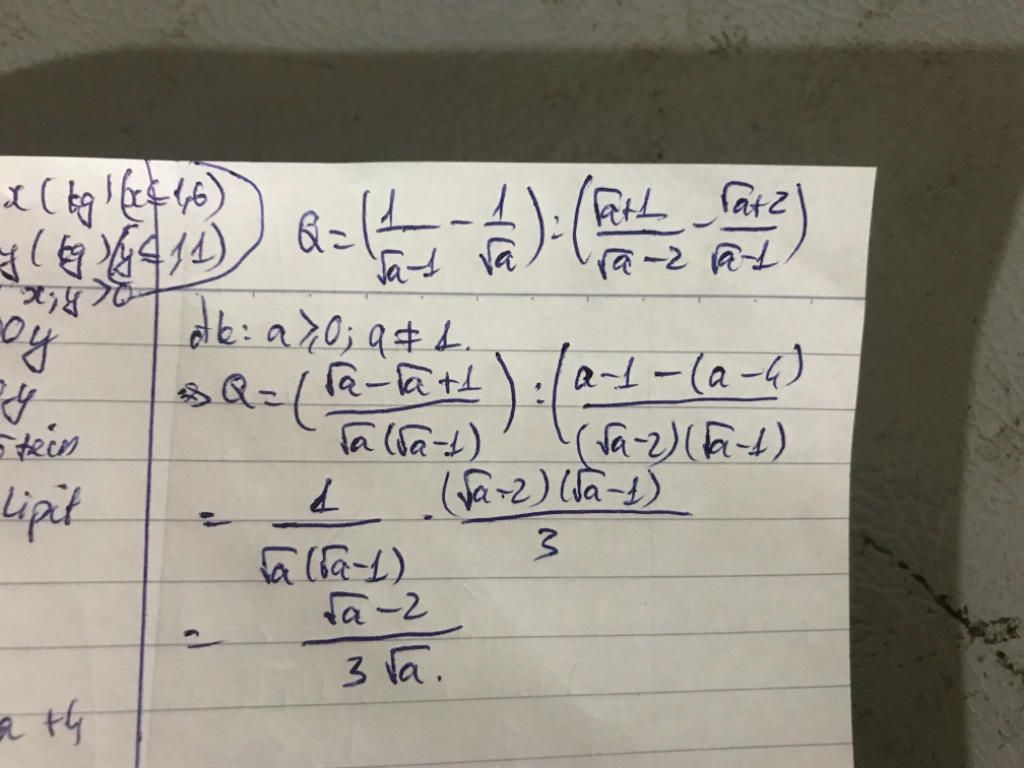 x (kg) (x ≤ 1,6)
y (kg) (y ≤ 1,1)
x, y > 0
0y
y
tein
lipit
a + 4
Q = (1/(√a-1) - 1/√a) : ((√a+1)/(√a-2) - (√a+2)/(√a-1))
đk: a ≥ 0; a ≠ 1.
⇒ Q = ((√a - √a + 1)/(√a(√a-1))) : ((a-1-(a-4))/((√a-2)(√a-1))
= 1/(√a(√a-1)) . ((√a-2)(√a-1))/3
= (√a-2)/(3√a).